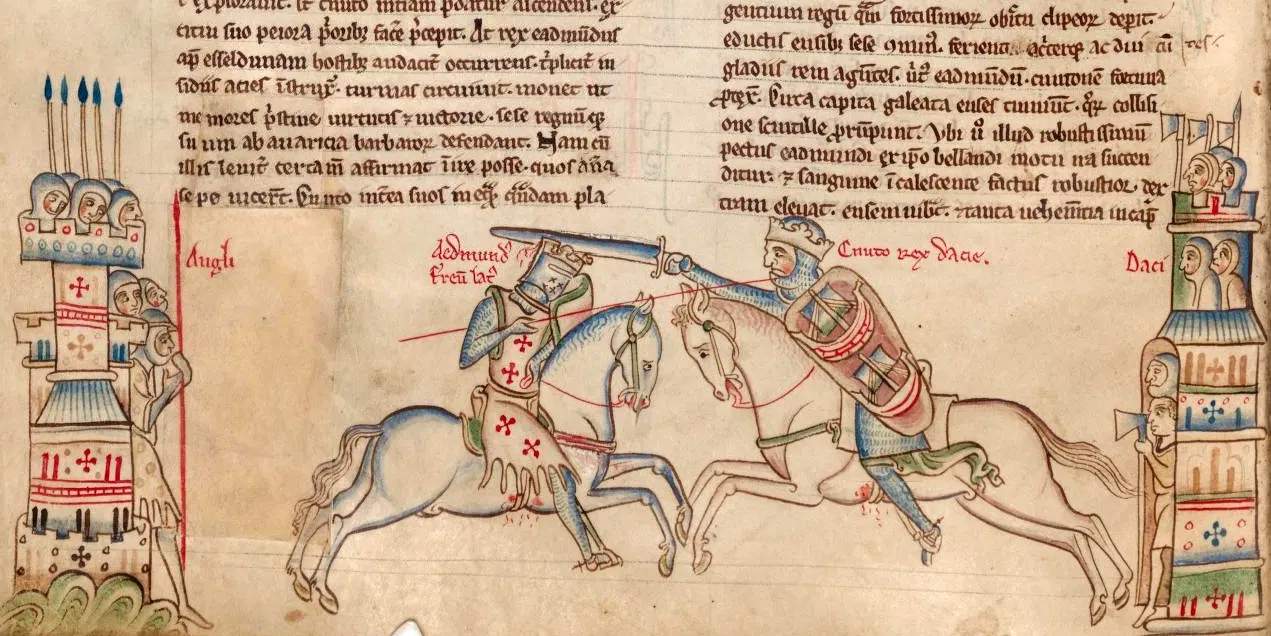 citiu suo peiora p̄orib; fac̄e p̄cepit. At rex eadmūdus
ap̄ esseldunam hostib; audact̄ occurrens. t̄plicit̄ in
sidiis acies īstrux̄. turmas circuiuit. monet ut
me mores p̄stine uirtutis ⁊ uictorie. sese regnū q̄;
su um ab auaricia barbaroꝝ defendant. Nam cū
illis leuit̄ certam̄ affirmat īire posse. quos an̄a
se pe uicer̄t. Cnuto int̄ea suos in pla
gentium regū fortissimoꝝ clipeoꝝ depit.
eductis ensib; sese ferient. ac̄terq; ac diu cū
gladiis rem agētes. eadmūdū. cnutonē fortuna
p̄tex̄. Circa capita galeata enses tinniūt. collisi
one scintille p̄rūpunt. Ubi ū illud robustissimū
pectus eadmundi ex ip̄o bellandi motu succen
ditur. ⁊ sanguine īcalescente factus robustior dex
tram eleuat. ensem uibt̄. ⁊ tanta uehem̄tia in cap̄
Angli
Aedmund⁹
ferrū lat⁹
Cnuto rex dacie.
Daci